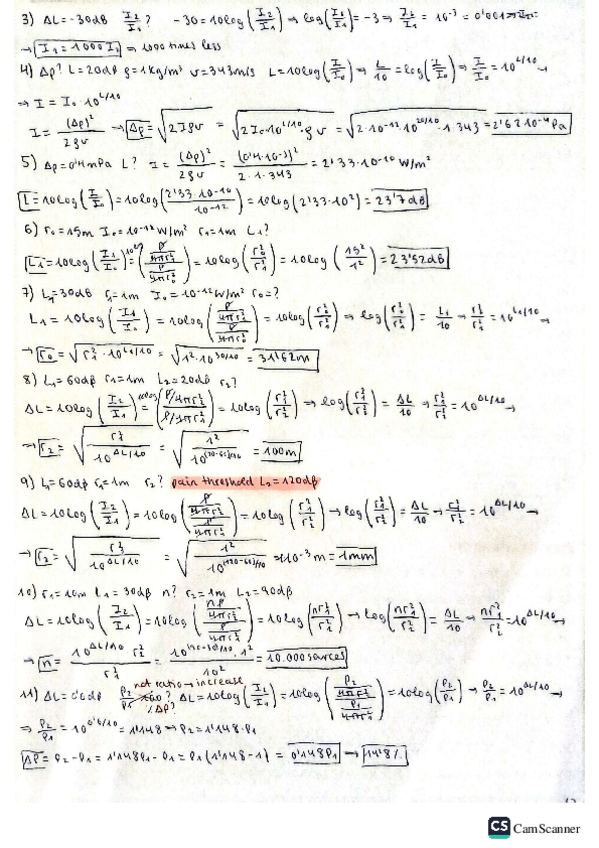 3) ΔL = -30dB I₂/I₁? -30 = 10log(I₂/I₁) → log(I₂/I₁) = -3 → I₂/I₁ = 10⁻³ = 0'001 →
→ I₁ = 1000 I₂ ⇒ 1000 times less
4) Δp? L = 20dB ρ = 1kg/m³ v = 343m/s L = 10log(I/I₀) → L/10 = log(I/I₀) → I/I₀ = 10^(L/10) →
→ I = I₀·10^(L/10)
I = (Δp)²/2ρv → Δp = √(2Iρv) = √(2I₀·10^(L/10)·ρv) = √(2·10⁻¹²·10^(20/10)·1·343) = 2'62·10⁻⁴ Pa
5) Δp = 0'4mPa L? I = (Δp)²/2ρv = (0'4·10⁻³)²/2·1·343 = 2'33·10⁻¹⁰ W/m²
L = 10log(I/I₀) = 10log(2'33·10⁻¹⁰/10⁻¹²) = 10log(2'33·10²) = 23'7dB
6) r₀ = 15m I₀ = 10⁻¹² W/m² r₁ = 1m L₁?
L₁ = 10log(I₁/I₀) = 10log((P/4πr₁²)/(P/4πr₀²)) = 10log(r₀²/r₁²) = 10log(15²/1²) = 23'52dB
7) L₁ = 30dB r₁ = 1m I₀ = 10⁻¹² W/m² r₀ = ?
L₁ = 10log(I₁/I₀) = 10log((P/4πr₁²)/(P/4πr₀²)) = 10log(r₀²/r₁²) → log(r₀²/r₁²) = L₁/10 → r₀²/r₁² = 10^(L₁/10) →
→ r₀ = √(r₁²·10^(L₁/10)) = √(1²·10^(30/10)) = 31'62m
8) L₁ = 60dB r₁ = 1m L₂ = 20dB r₂?
ΔL = 10log(I₂/I₁) = 10log((P/4πr₂²)/(P/4πr₁²)) = 10log(r₁²/r₂²) → log(r₁²/r₂²) = ΔL/10 → r₁²/r₂² = 10^(ΔL/10) →
→ r₂ = √(r₁²/10^(ΔL/10)) = √(1²/10^((20-60)/10)) = 100m
9) L₁ = 60dB r₁ = 1m r₂? pain threshold L₂ = 120dB
ΔL = 10log(I₂/I₁) = 10log((P/4πr₂²)/(P/4πr₁²)) = 10log(r₁²/r₂²) → log(r₁²/r₂²) = ΔL/10 → r₁²/r₂² = 10^(ΔL/10) →
→ r₂ = √(r₁²/10^(ΔL/10)) = √(1²/10^((120-60)/10)) = 10⁻³ m = 1mm
10) r₁ = 10m L₁ = 30dB n? r₂ = 1m L₂ = 90dB
ΔL = 10log(I₂/I₁) = 10log((nP/4πr₂²)/(P/4πr₁²)) = 10log(nr₁²/r₂²) → log(nr₁²/r₂²) = ΔL/10 → nr₁²/r₂² = 10^(ΔL/10) →
→ n = 10^(ΔL/10)·r₂²/r₁² = 10^((90-30)/10)·1²/10² = 10.000 sources
not ratio → increase
11) ΔL = 0'6dB P₂/P₁ ? ΔL = 10log(I₂/I₁) = 10log((P₂/4πr²)/(P₁/4πr²)) = 10log(P₂/P₁) → P₂/P₁ = 10^(ΔL/10) →
% ΔP?
→ P₂/P₁ = 10^(0'6/10) = 1'148 → P₂ = 1'148·P₁
ΔP = P₂ - P₁ = 1'148P₁ - P₁ = P₁(1'148 - 1) = 0'148P₁ → 14'8%
CS CamScanner